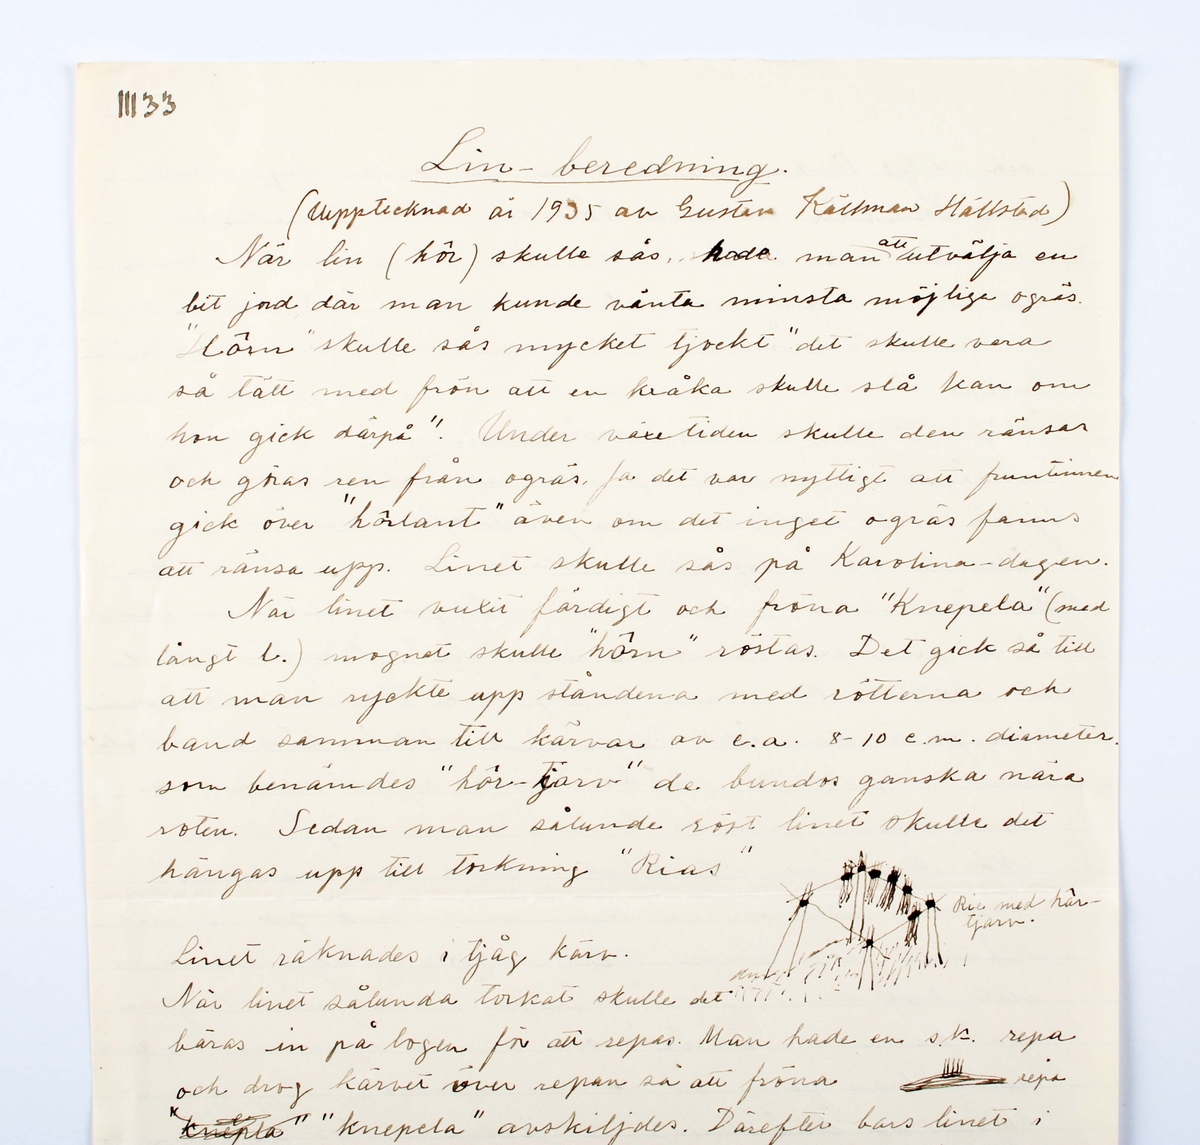 III 33
Lin-beredning.
(Uppptecknad år 1935 av Gustav Källman Hällstad)
När lin (hôr) skulle sås, hade man att utvälja en
bit jord där man kunde vänta minsta möjliga ogräs.
"Hôrn" skulle sås mycket tjockt "det skulle vera
så tätt med frön att en kråka skulle slå kan om
hon gick därpå". Under växetiden skulle den ränsar
och göras ren från ogräs. Ja det var nyttigt att fruntimren
gick över "hôrlant" även om det inget ogräs fanns
att ränsa upp. Linet skulle sås på Karolina-dagen.
När linet vuxit färdigt och fröna "Knepela" (med
långt l.) mognat skulle "hôrn" röstas. Det gick så till
att man ryckte upp stånderna med rötterna och
band samman till kärvar av c.a. 8-10 c.m. diameter.
som benämdes "hôr-tjärv" de bundos ganska nära
roten. Sedan man sålunde röst linet skulle det
hängas upp till torkning "Rias"
Rie med hôr-
tjärv.
Linet räknades i tjåg kärv.
När linet sålunda torkat skulle det
bäras in på logen för att repas. Man hade en s.k. repa
och drog kärvet över repan så att fröna
repa
"knepela" avskiljdes. Därefter bars linet i